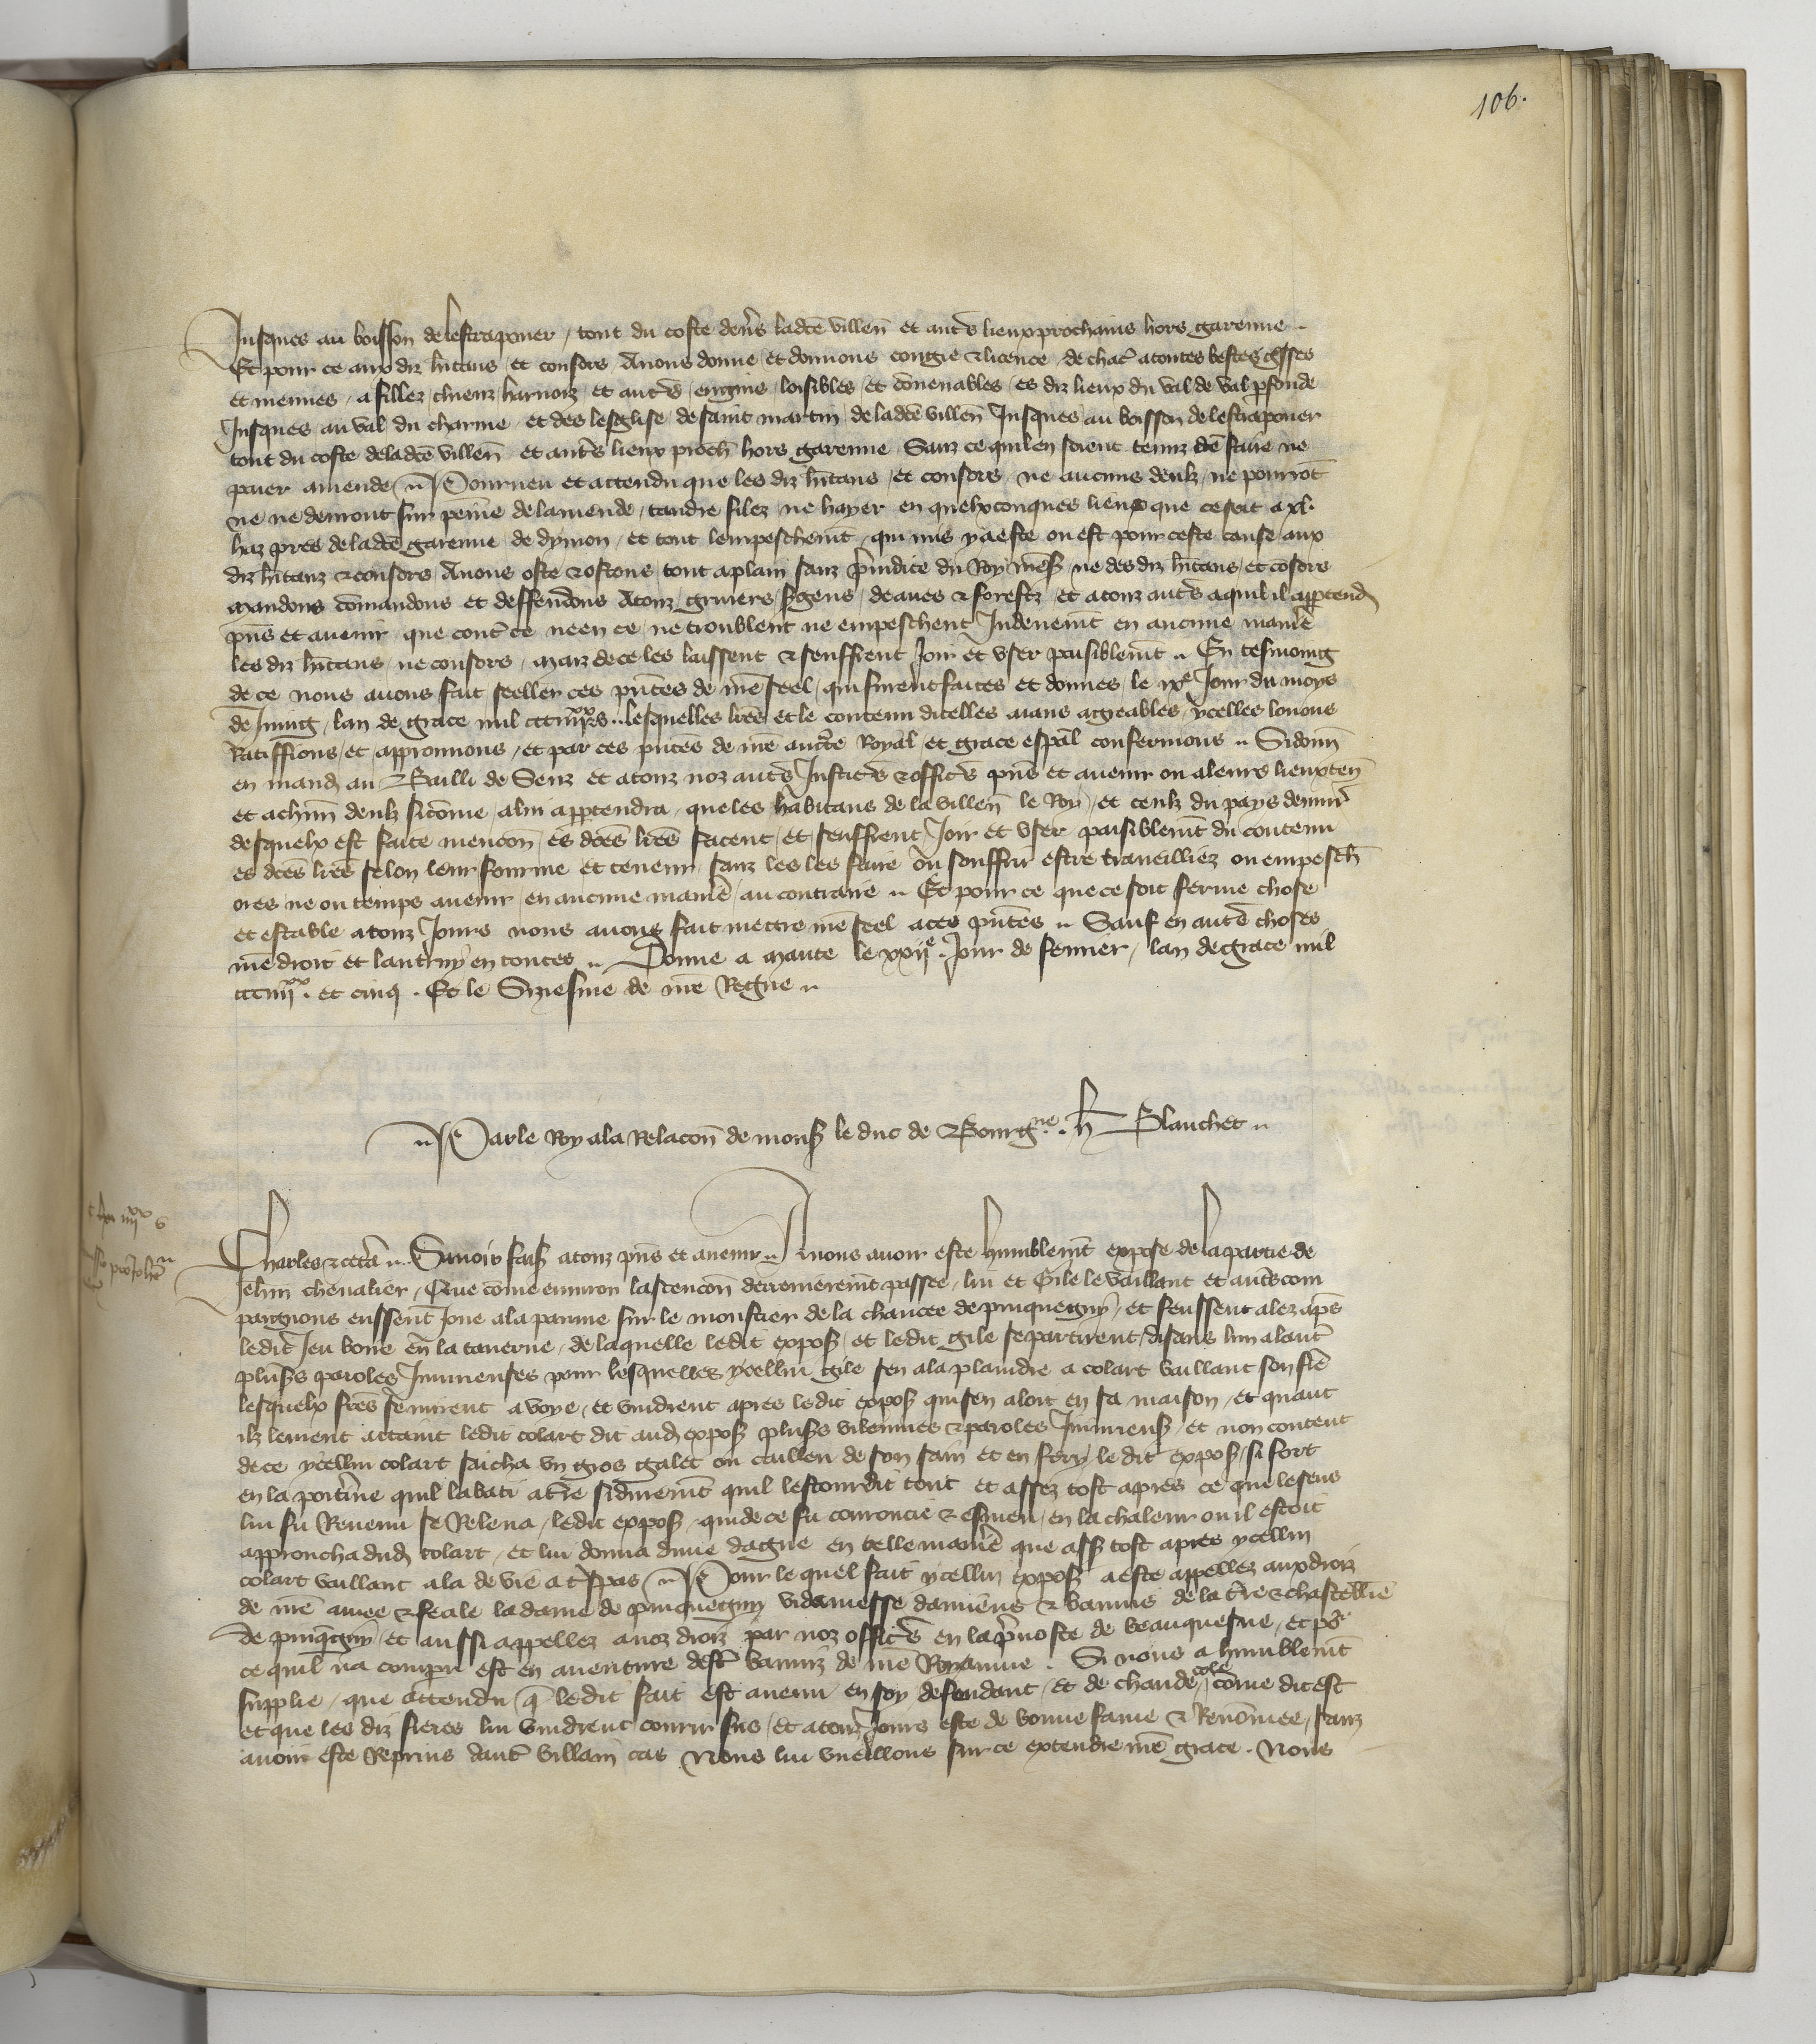 106.
Jusques au boisson de lestrapouer / tout du coste deṽs ladc̃e villen̄ et aut̃s lieux prochains hors garenne ..
Et pour ce aux diz h̃itans et consors Auons donne et donnons congie & licence de chac̃ a toutes bestes g̃sses
et menues / a fillez chienz harnoiz et aut̃s engins loisibles et conuenables es diz lieux du val de val p̃fonde
Jusques au val du charme et des lesglise de saint martin de ladc̃e villen̄ Jusques au boisson de lestrapouer
tout du coste de ladc̃e villen̄ et aut̃s lieux proch̃ hors garenne Sanz ce quilen soient tenuz de faire ne
paier amende .. Pourueu et attendu que les diz h̃itans et consors ne aucuns deulx ne pourrōt
ne ne deuront sur peine de lamende / tandre filez ne hayer en quelxconques lieux que ce soit a xl.
haz pres de ladc̃e garenne de dymon / et tout lempeschem̄t qui mis y a este ou est pour ceste cause aux
diz h̃itanz & consors Auons oste & ostons tout a plain sanz p̃iudice du Roy n̄re s̃ ne des diz h̃itans et cōsors
Mandons cōmandons et deffendons A touz gruiers s̃gens deaues & forestz et a touz aut̃s a quil il app̃tend̃
p̃ns et auenir que cont̃ ce ne en ce ne troublent ne empeschent Indeuem̄t en aucune manie͂
les diz h̃itans ne consors / maiz de ce les laissent & seuffrent Joir et vser paisiblem̄t .. En tesmoing
de ce nous auons fait seeller ces p̃ntes de n̄re seel / qui furent faites et donnes le ixe Jour du moys
de Juing / lan de grace mil ccciiijxx .. lesquelles lr̃es et le contenu dicelles aians agreables / ycelles louons
Ratiffions et approuuons / et par ces p̃ntes de n̄re auct̃e Royal et grace esp̃al confermons .. Sidonn̄
en mand̃ au Bailli de Senz et a touz noz aut̃s Justic̃s & offic̃s p̃ns et auenir ou a leurs lieuxten̄
et a chun̄ deulx sicōme a lui app̃tendra / que les habitans de la villen̄ le Roy et ceulx du pays denuir̃
desquelx est faite mencōn es dc̃es lr̃es facent et seuffrent Joir et vser paisiblem̄t du contenu
es dc̃es lr̃es selon leur fourme et teneur / sanz les les faire ou souffrir estre trauailliez ou empesch̃
ores ne ou temps auenir / en aucune manie͂ / au contraire .. Et pour ce que ce soit ferme chose
et estable a touz Jours nous auons fait mettre n̄re seel a ces p̃ntes .. Sauf en aut̃s choses
n̄re droit et lautruy en toutes .. Donne a Mante le xxije. Jour de feurier / lan de grace mil
ccciiijxx. et cinq . Et le Siziesme de n̄re Regne ..
.. Par le Roy a la Relacōn de mons̃ le duc de Bourgne. h̃ Blanchet ..
Charles & cetã .. Sauoir fais̃ a touz p̃ns et auenir .. A nous auoir este humblem̄t expose de la partie de
Jehan chevalier / Que cōme enuiron lascencōn derrenierem̄t passee / lui et Gile le Vaillant et aut̃s com
paignons eussent Joue a la paume sur le monstier de la chaucee de pinquegny / et feussent alez ap̃s
ledit Jeu boire en la tauerne / de laquelle ledit expos̃ et ledit gile se partirent / disans lun a laut̃
plus̃s paroles Iniurieuses pour lesquelles ycellui gile sen ala plaindre a colart vaillant son fr̃e
lesquelx fr̃es se mirent a voye / et vindrent apres ledit expos̃ qui sen aloit en sa maison / et quant
ilz leurent attaint ledit colart dit aud̃ expos̃ plus̃s vilennies & paroles Iniurieus̃ / et non content
de ce ycellui colart saicha vn gros galet ou caillou de son sain et en fery le dit expos̃ si fort
en la poitrine quil labati a t̃re si durem̄t quil lestourdit tout et assez tost apres ce que le sens
lui fu Reuenu se Releua / ledit expos̃ qui de ce fu courroucie & esmeu / en la chaleur ou il estoit
approucha dud̃ colart / et lui donna dune dague en telle manie͂ que ass̃ tost apres ycellui
colart vaillant ala de vie a t̃spas .. Pour le quel fait ycellui expos̃ a este appellez aux droiz
de n̄re amee & feale la dame de pinquegny vidamesse damiens & bannis de la t̃re & chastellīe
de pinq̃gny / et aussi appellez a noz droiz par noz offic̃s en la p̃uoste de beauquesne / et po͂
ce quil na compu est en auenture dest̃ bannis de n̄re Royaume . Si nous a humblem̄t
supplie / que attendu q̃ ledit fait est auenu en soy defendent / et de chaude cole cōme dit est
et que les diz freres lui vindrent courir sus / et a touz Jours este de bonne fame & Renōmee / sanz
auoir este Reprins daut̃ villain cas Nous lui vueillons sur ce extendre n̄re grace . Nous